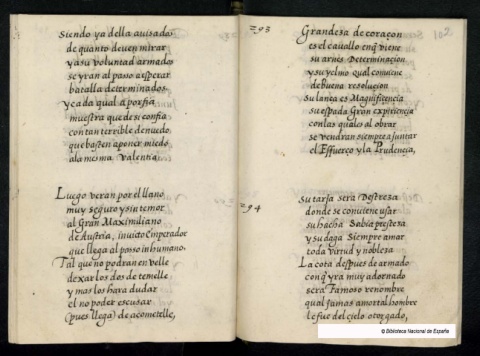 Siendo ya della auisados
de quanto deuen mirar
y a su voluntad armados
se yran al passo a esperar
batalla determinados
y cada qual a porfia
muestra que de si confia
con tan terrible denuedo
que basten a poner miedo
a la mesma valentia.
Luego veran por el llano
muy seguro y sin temor
al Gran Maximiliano
de Austria, inuicto Emperador
que llega al passo inhumano.
Tal que no podran en velle
dexar los dos de temelle
y mas los hara dudar
el no poder escusar
(pues llega) de acometelle,
293
294
102
Grandesa de coraçon
es el cauallo enq̃ viene
su arnes Determinacion
y su yelmo qual conuiene
de buena resolucion
Su lança es Magnificencia
su espada Gran expiriencia
con las quales al obrar
se vendran siempre a juntar
el Esfuerço y la Prudencia,
Su tarja sera Destreza
donde se conuiene usar
su hacha Sabia presteza
y su daga Siempre amar
toda virtud y nobleza
La cota despues de armado
con q̃ yra muy adornado
sera Famoso renombre
qual jamas a mortal hombre
le fue del cielo otorgado,
© Biblioteca Nacional de España